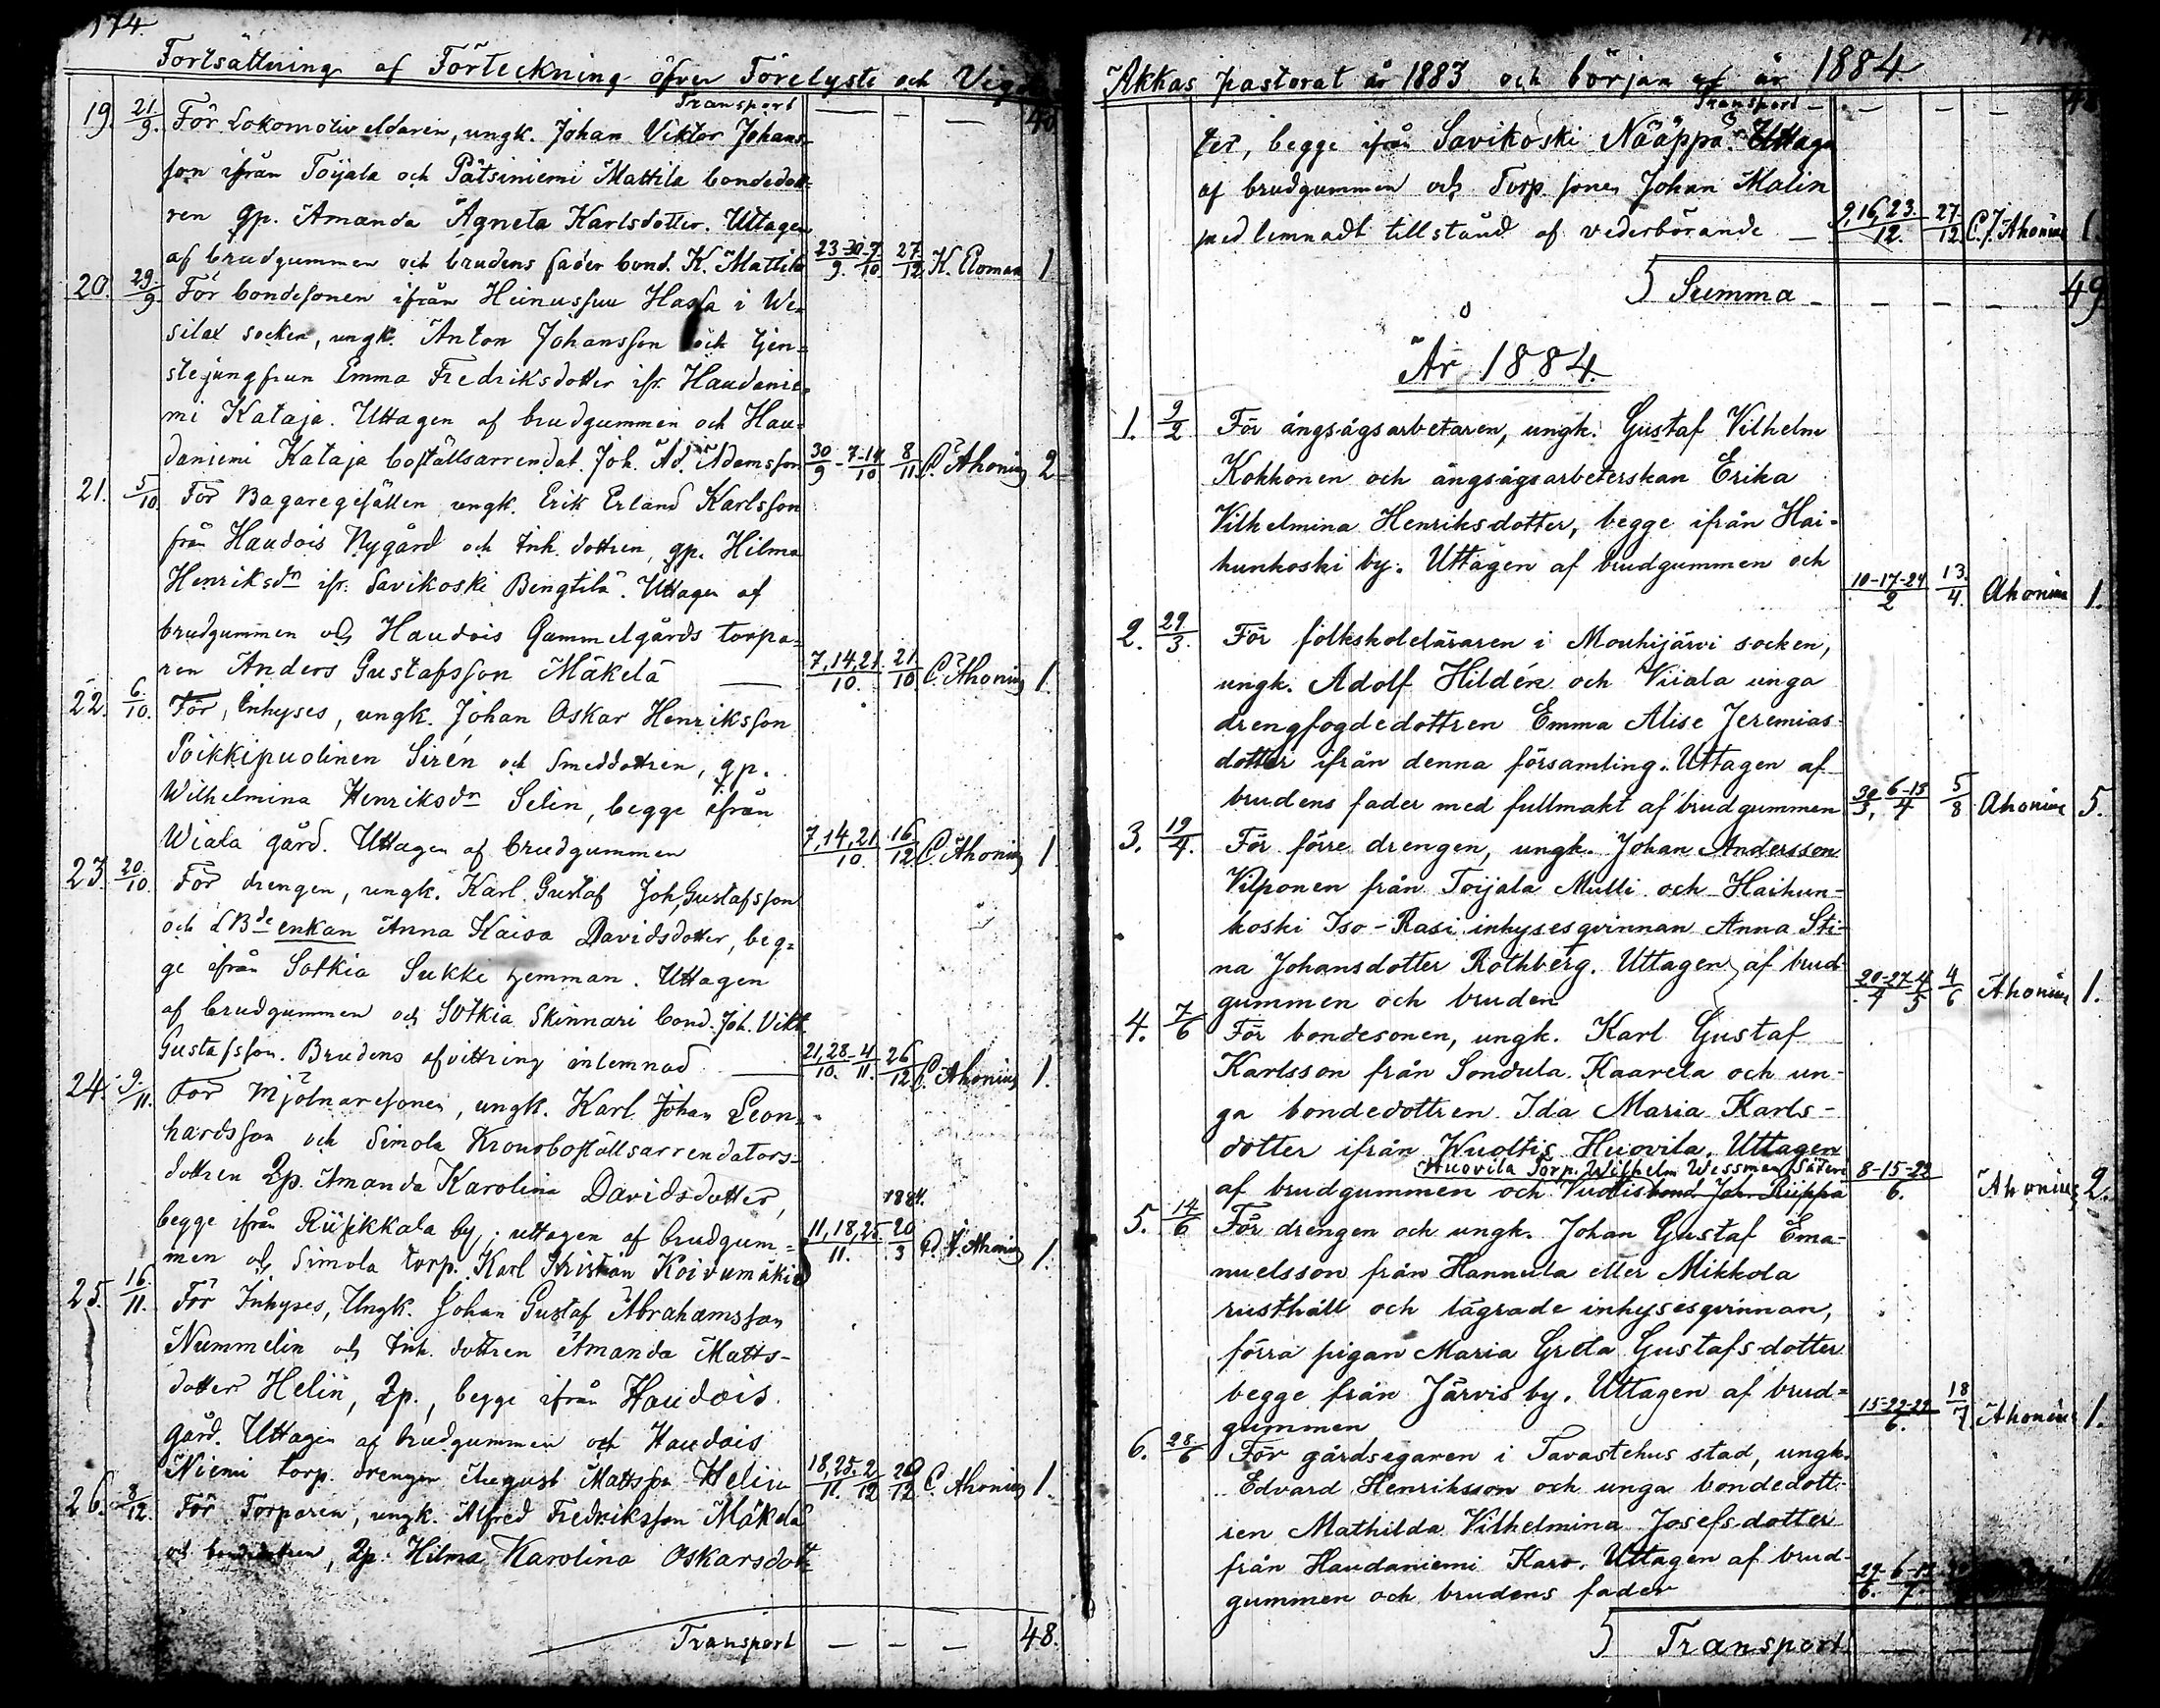 174.
Fortsättning af Förteckning öfver Förelyste och Vigde
Transport — — — 40
19. 21/9. För Lokomotiveldaren, ungk. Johan Viktor Johans-
son ifrån Toijala och Pätsiniemi Mattila bondedott-
ren qp. Amanda Agneta Karlsdotter. Uttagen
af brudgummen och brudens fader bond. K. Mattila 23-30/9-7/10 27/12 K. Eloman 1
20. 29/9 För bondesonen ifrån Heinusuu Hassa i We-
silax socken, ungk. Anton Johansson och tjen-
stejungfrun Emma Fredriksdotter ifr. Haudanie-
mi Kataja. Uttagen af brudgummen och Hau-
daniemi Kataja boställsarrendat. Joh. Ad. Adamsson 30/9-7-14/10 8/11 C. Ahonius 2
21. 5/10. För Bagaregesällen ungk. Erik Erland Karlsson
från Haudois Nygård och Inh. dottren, qp. Hilma
Henriksdn ifr. Savikoski Bengtilä. Uttagen af
brudgummen och Haudois Gammelgårds torpa-
ren Anders Gustafsson Mäkelä — 7,14,21/10. 21/10 C. Ahonius 1.
22. 6/10. För Inhyses, ungk. Johan Oskar Henriksson
Poikkipuolinen Sirén och Smeddottren, qp.
Wilhelmina Henriksdn Selin, begge ifrån
Wiala gård. Uttagen af brudgummen 7,14,21/10. 16/12 C. Ahonius 1
23. 20/10. För drengen, ungk. Karl Gustaf Joh. Gustafsson
och LBde enkan Anna Kaisa Davidsdotter, beg-
ge ifrån Sotkia Sukke hemman. Uttagen
af brudgummen och Sotkia Skinnari bond. Joh. Vikt.
Gustafsson. Brudens afvittring inlemnad — 21,28/10.-4/11. 26/12 C. Ahonius 1.
24. 9/11. För Mjölnaresonen, ungk. Karl Johan Leon-
hardsson och Simola Kronoboställsarrendators-
dottren Qp. Amanda Karolina Davidsdotter,
1884.
begge ifrån Riisikkala by; uttagen af brudgum- 11,18,25/11. 20/3 C. J. Ahonius 1.
men och Simola torp. Karl Kristian Koivumäki
25. 16/11. För Inhyses, Ungk. Johan Gustaf Abrahamsson
Nummelin och Inh. dottren Amanda Matts-
dotter Helin, Qp., begge ifrån Haudois
gård. Uttagen af brudgummen och Haudois
Niemi torp. drengen August Mattsson Helin 18,25/11.-2/12 26/12 C. Ahonius 1.
26. 8/12. För Torparen, ungk. Alfred Fredriksson Mäkelä
och bondedottren, Qp. Hilma Karolina Oskarsdot-
Transport — — — 48.
Akkas pastorat år 1883 och början af år 1884
Transport — — — — 48
ter, begge ifrån Savikoski Nääppä. Uttagen
af brudgummen och Torp. sonen Johan Malin
med lemnadt tillstånd af vederbörande — 9,16,23./12. 27/12 C. J. Ahonius 1.
Summa — — — — 49
År 1884.
1. 9/2 För ångsågsarbetaren, ungk. Gustaf Vilhelm
Kokkonen och ångsågsarbeterskan Erika
Vilhelmina Henriksdotter, begge ifrån Hai-
hunkoski by. Uttagen af brudgummen och
10-17-24/2 13./4. Ahonius 1.
2. 29/3. För folkskoleläraren i Mouhijärvi socken,
ungk. Adolf Hildén och Viiala unga
drengfogdedottren Emma Alise Jeremias-
dotter ifrån denna församling. Uttagen af
brudens fader med fullmakt af brudgummen 30/3, 6-13/4 5/8 Ahonius 5.
3. 19/4. För förre drengen, ungk. Johan Andersson
Vilponen från Toijala Mulli och Haihun-
koski Iso-Rasi inhysesqvinnan Anna Sti-
na Johansdotter Rothberg. Uttagen af brud-
gummen och bruden 20-27/4 4/5 4/6 Ahonius 1.
4. 7/6 För bondesonen, ungk. Karl Gustaf
Karlsson från Sondula Kaarela och un-
ga bondedottren Ida Maria Karls-
dotter ifrån Wuoltis Huovila. Uttagen
Huovila Torp. Wilhelm Wessman Säteri
af brudgummen och Vuoltis bond Joh. Riippa 8-15-22/6. Ahonius 2.
5. 14/6 För drengen och ungk. Johan Gustaf Ema-
nuelsson från Hannula eller Mikkola
rusthåll och lägrade inhysesqvinnan,
förra pigan Maria Greta Gustafsdotter
begge från Järvis by. Uttagen af brud-
gummen 15-22-29/6. 18/7 Ahonius 1.
6. 28/6 För gårdsegaren i Tavastehus stad, ungk.
Edvard Henriksson och unga bondedott-
ren Mathilda Vilhelmina Josefsdotter
från Haudaniemi Karo. Uttagen af brud-
gummen och brudens fader 29/6. 6-13/7.
Transport — —